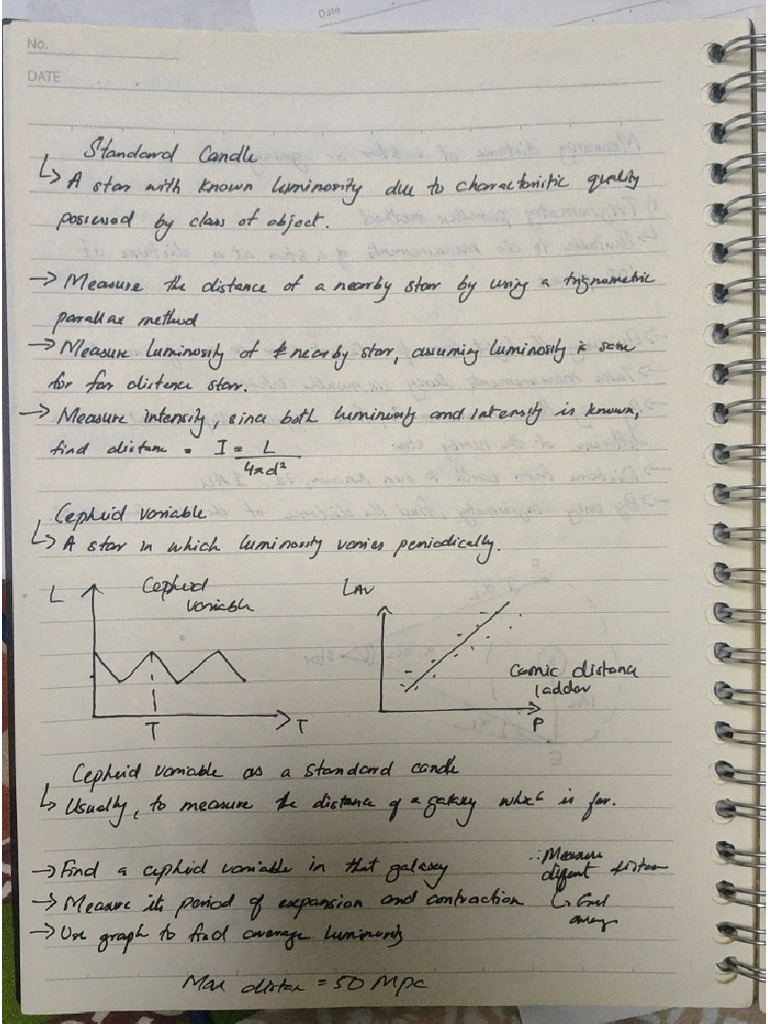 Date
No.
DATE
Standard Candle
↳ A star with known luminosity due to characteristic quality
possessed by class of object.
→ Measure the distance of a nearby star by using a trignometric
parallax method
→ Measure luminosity of nearby star, assuming luminosity is same
for far distance star.
→ Measure intensity, since both luminosity and intensity is known,
find distance. I = L / 4πd²
Cepheid variable
↳ A star in which luminosity varies periodically.
L Cepheid variable T T
LAV Cosmic distance ladder P
Cepheid variable as a standard candle
↳ Usually, to measure the distance of a galaxy which is far.
→ Find a cepheid variable in that galaxy
→ Measure its period of expansion and contraction
→ Use graph to find average luminosity
∴ Measure
↳ Find
average
Max distan = 50 Mpc